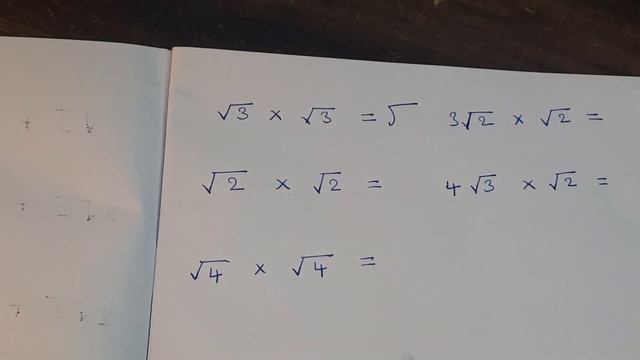 √3 × √3 = √ 3√2 × √2 =
√2 × √2 = 4√3 × √2 =
√4 × √4 =